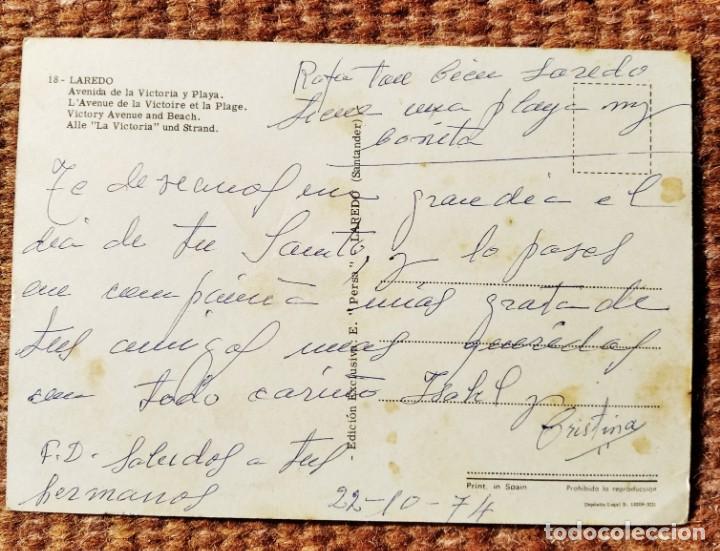 18 - LAREDO
Avenida de la Victoria y Playa.
L'Avenue de la Victoire et la Plage.
Victory Avenue and Beach.
Alle "La Victoria" und Strand.
Rafa tan bien Laredo
tiene una playa my
bonita
Te deseamos un gran dia el
dia de tu Santo, y lo pases
en compañia mas grata de
tus amigos mas queridos
con todo cariño Isabel y
Cristina
P.D. Saludos a tus
hermanos
22-10-74
- Edición Exclusiva: E. "Persa" LAREDO (Santander)
Print. in Spain
Prohibida la reproducción
Depósito Legal B.
todocoleccion
todocoleccion.com